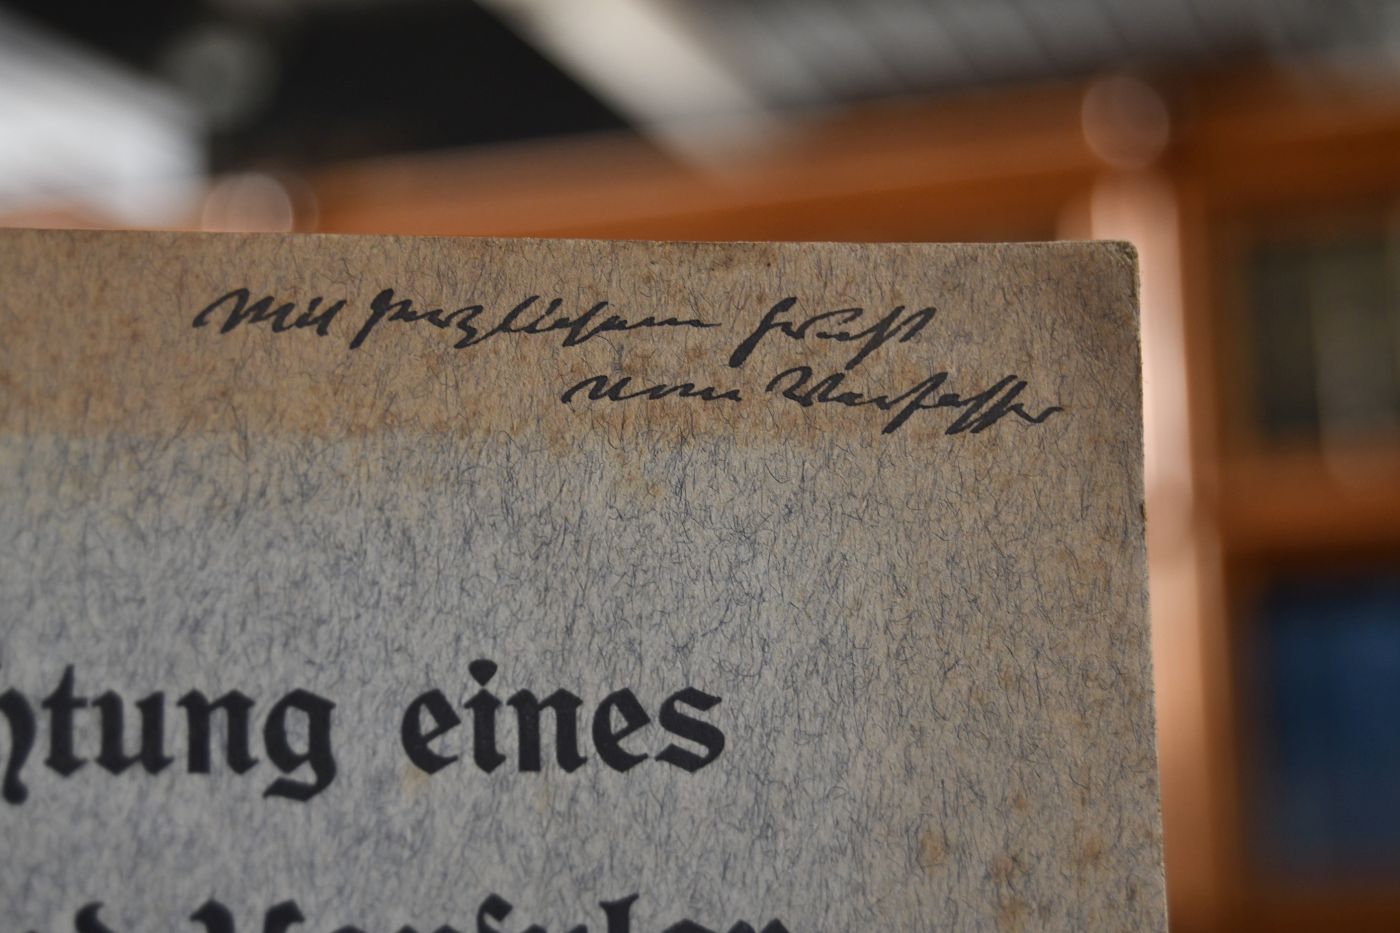 Mit herzlichem Gruß
vom Verfasser
htung eines